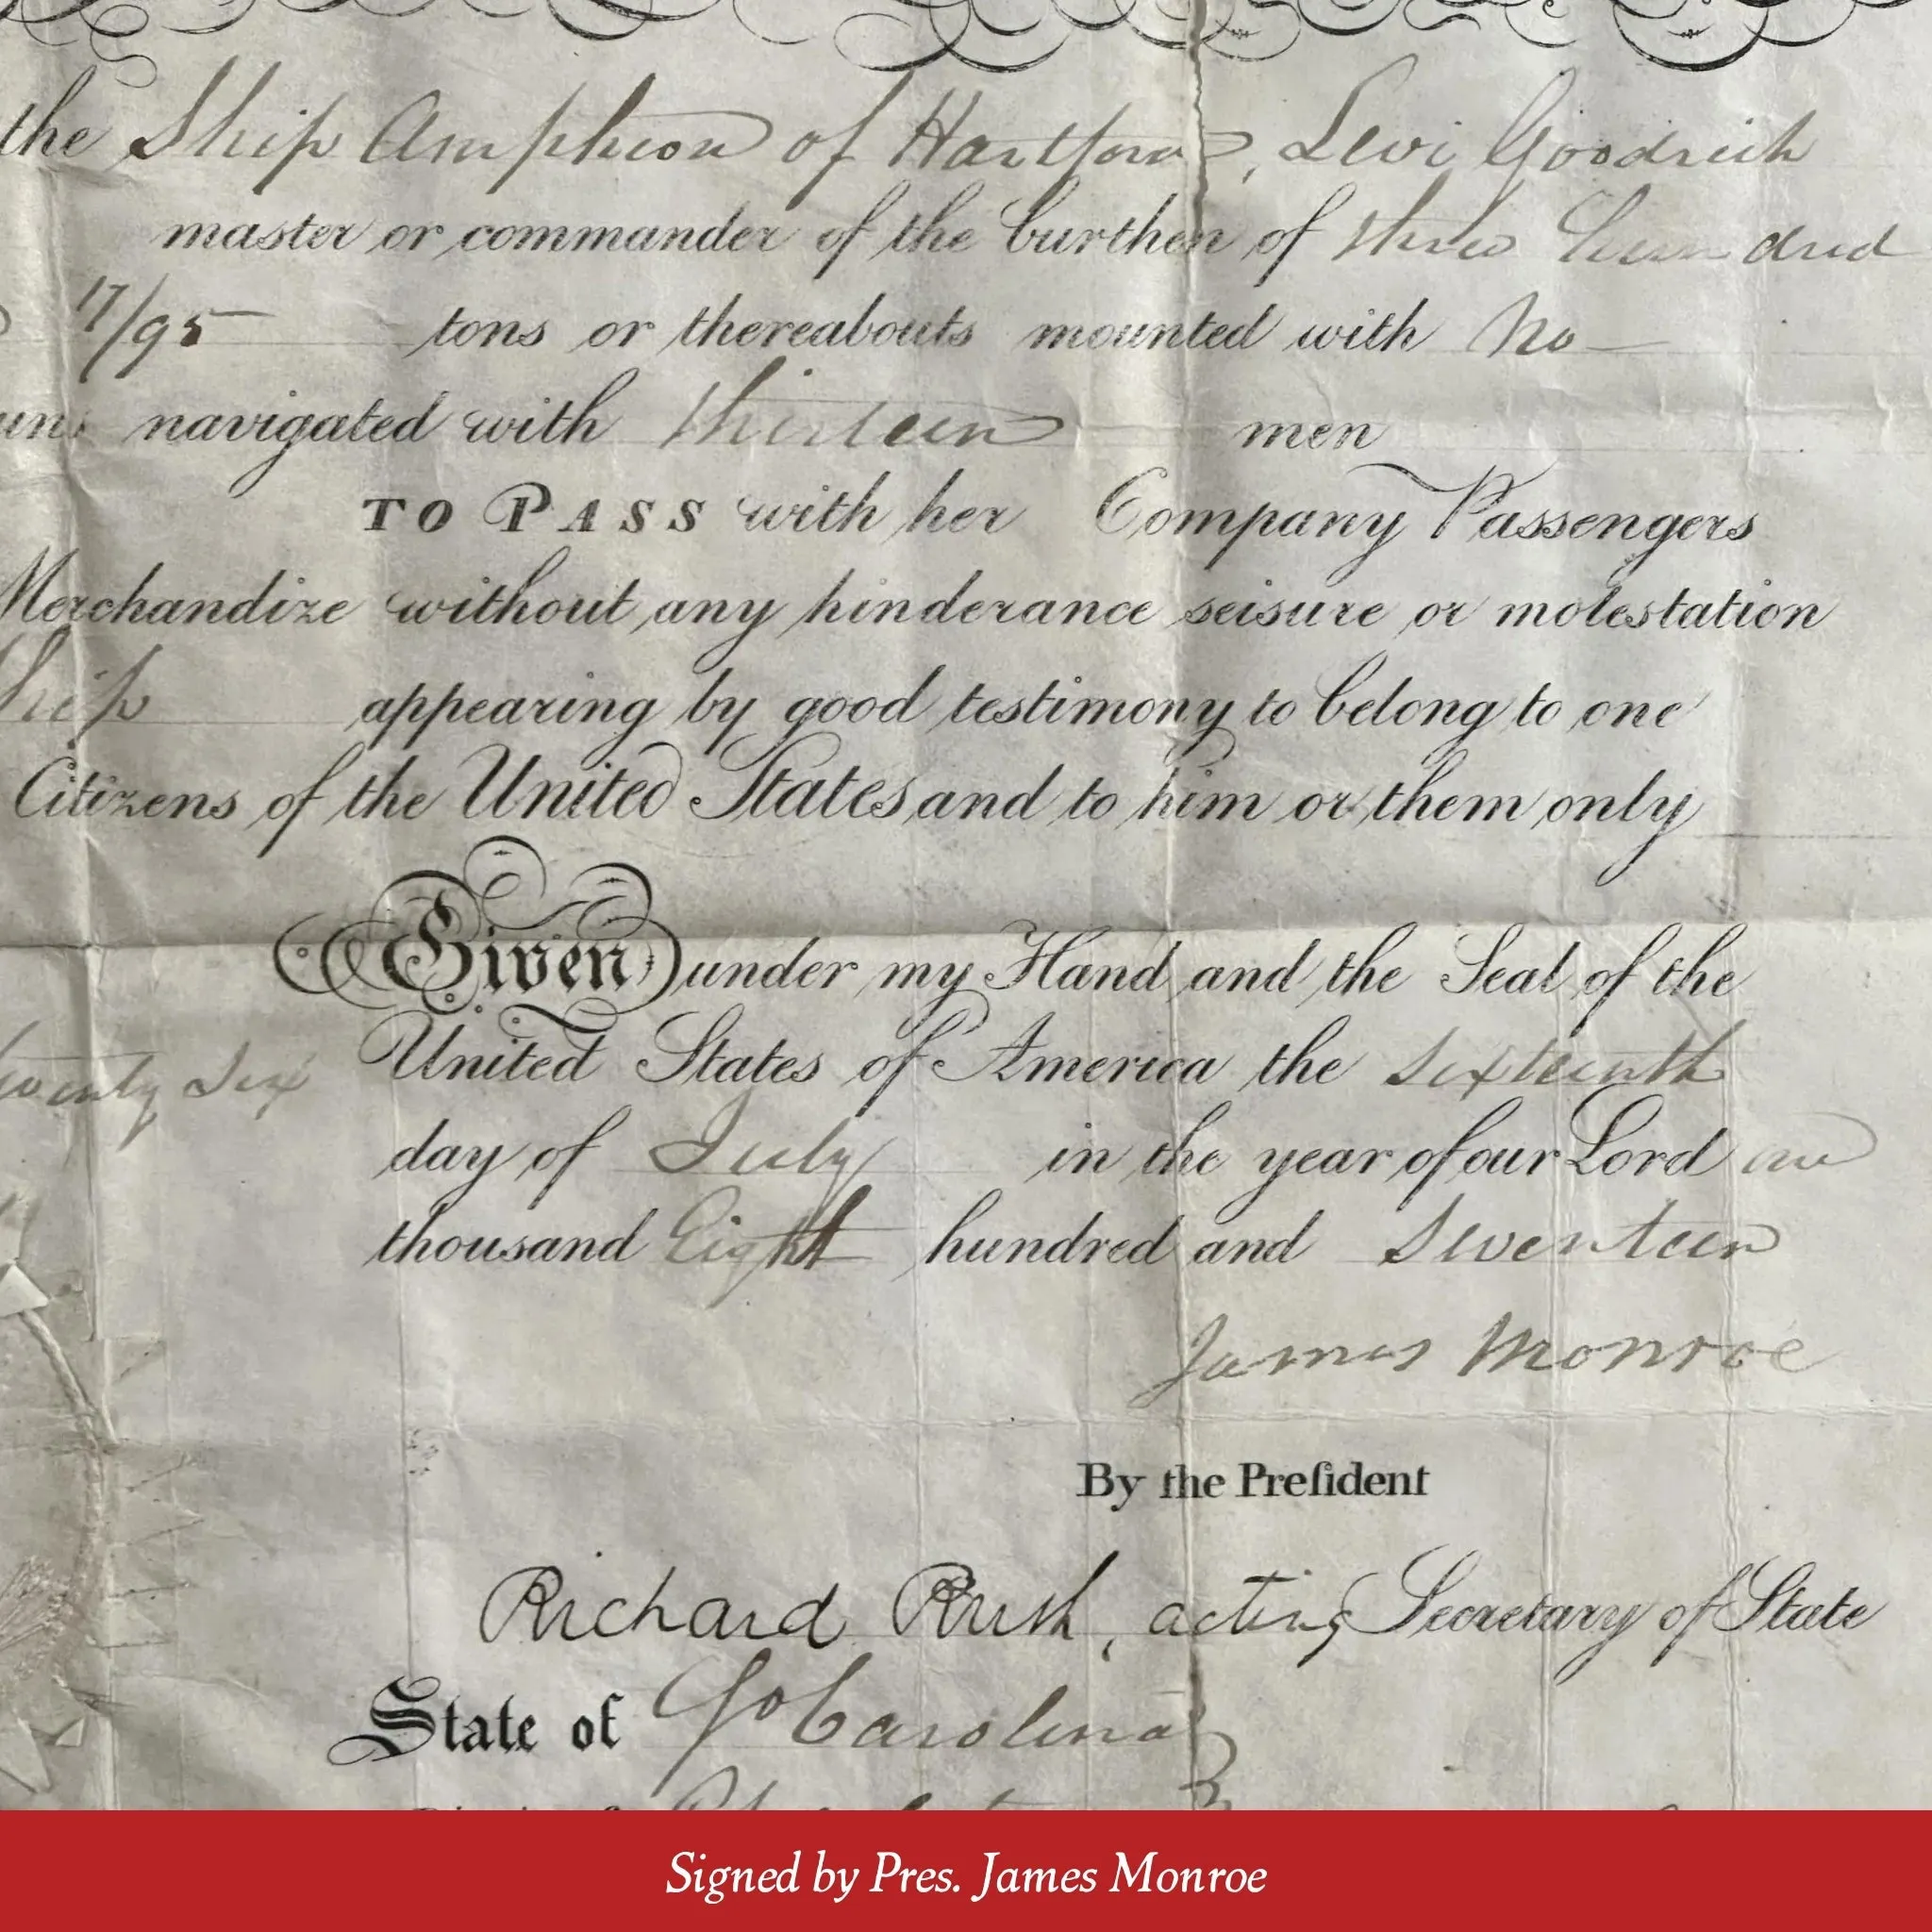 the Ship Amphion of Hartford, Levi Goodrich
master or commander of the burthen of three hundred
17/95 tons or thereabouts mounted with no
navigated with thirteen men
TO PASS with her Company Passengers
Merchandize without any hinderance seisure or molestation
Ship appearing by good testimony to belong to one
Citizens of the United States and to him or them only
Given under my Hand and the Seal of the
United States of America the Sixteenth
twenty Six
day of July in the year of our Lord one
thousand Eight hundred and Seventeen
James Monroe
By the Preſident
Richard Rush, acting Secretary of State
State of So Carolina
Signed by Pres. James Monroe